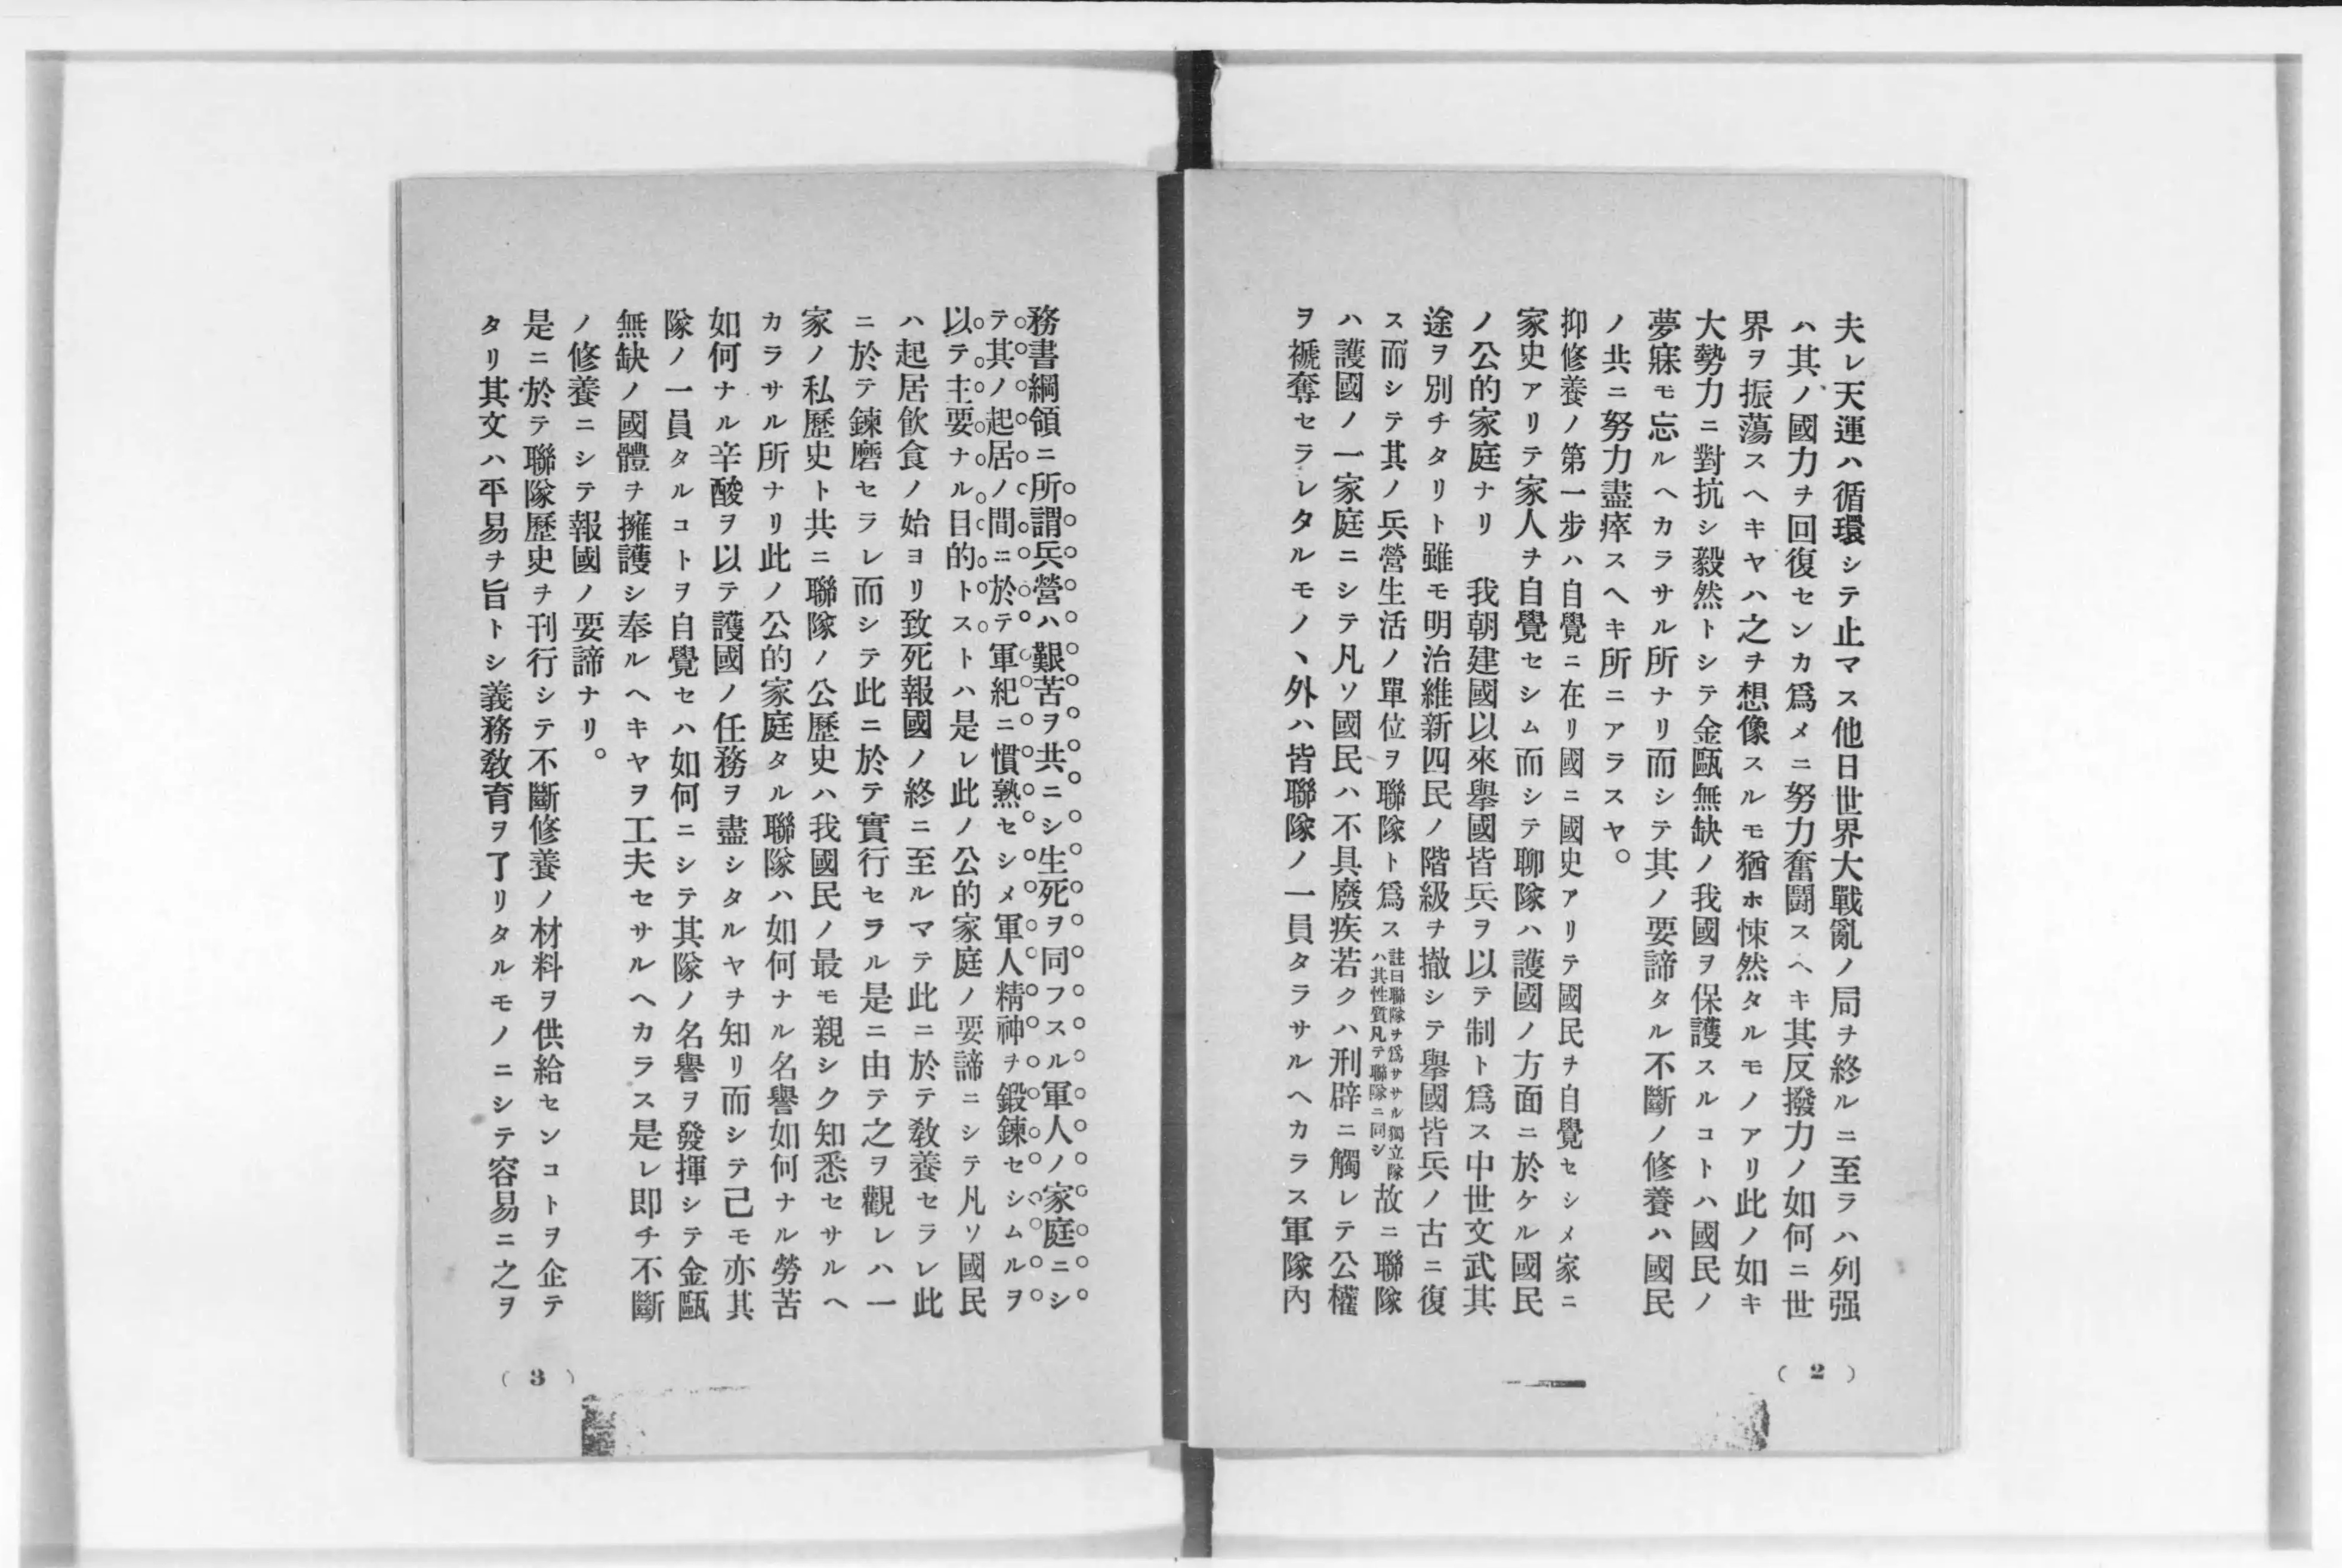 夫レ天運ハ循環シテ止マス他日世界大戰亂ノ局ヲ終ルニ至ラハ列强
ハ其ノ國力ヲ回復センカ爲メニ努力奮鬪スヘキ其反撥力ノ如何ニ世
界ヲ振蕩スヘキヤハ之ヲ想像スルモ猶ホ悚然タルモノアリ此ノ如キ
大勢力ニ對抗シ毅然トシテ金甌無缺ノ我國ヲ保護スルコトハ國民ノ
夢寐モ忘ルヘカラサル所ナリ而シテ其ノ要諦タル不斷ノ修養ハ國民
ノ共ニ努力盡瘁スヘキ所ニアラスヤ。
抑修養ノ第一步ハ自覺ニ在リ國ニ國史アリテ國民ヲ自覺セシメ家ニ
家史アリテ家人ヲ自覺セシム而シテ聯隊ハ護國ノ方面ニ於ケル國民
ノ公的家庭ナリ　我朝建國以來擧國皆兵ヲ以テ制ト爲ス中世文武其
途ヲ別チタリト雖モ明治維新四民ノ階級ヲ撤シテ擧國皆兵ノ古ニ復
ス而シテ其ノ兵營生活ノ單位ヲ聯隊ト爲ス註曰聯隊ヲ爲ササル獨立隊ハ其性質凡テ聯隊ニ同シ故ニ聯隊
ハ護國ノ一家庭ニシテ凡ソ國民ハ不具廢疾若クハ刑辟ニ觸レテ公權
ヲ褫奪セラレタルモノヽ外ハ皆聯隊ノ一員タラサルヘカラス軍隊內
(2)
務書綱領ニ所謂兵營ハ艱苦ヲ共ニシ生死ヲ同フスル軍人ノ家庭ニシ
テ其ノ起居ノ間ニ於テ軍紀ニ慣熟セシメ軍人精神ヲ鍛鍊セシムルヲ
以テ主要ナル目的トストハ是レ此ノ公的家庭ノ要諦ニシテ凡ソ國民
ハ起居飮食ノ始ヨリ致死報國ノ終ニ至ルマテ此ニ於テ敎養セラレ此
ニ於テ鍊磨セラレ而シテ此ニ於テ實行セラル是ニ由テ之ヲ觀レハ一
家ノ私歷史ト共ニ聯隊ノ公歷史ハ我國民ノ最モ親シク知悉セサルヘ
カラサル所ナリ此ノ公的家庭タル聯隊ハ如何ナル名譽如何ナル勞苦
如何ナル辛酸ヲ以テ護國ノ任務ヲ盡シタルヤヲ知リ而シテ己モ亦其
隊ノ一員タルコトヲ自覺セハ如何ニシテ其隊ノ名譽ヲ發揮シテ金甌
無缺ノ國體ヲ擁護シ奉ルヘキヤヲ工夫セサルヘカラス是レ即チ不斷
ノ修養ニシテ報國ノ要諦ナリ。
是ニ於テ聯隊歷史ヲ刊行シテ不斷修養ノ材料ヲ供給センコトヲ企テ
タリ其文ハ平易ヲ旨トシ義務敎育ヲ了リタルモノニシテ容易ニ之ヲ
(3)